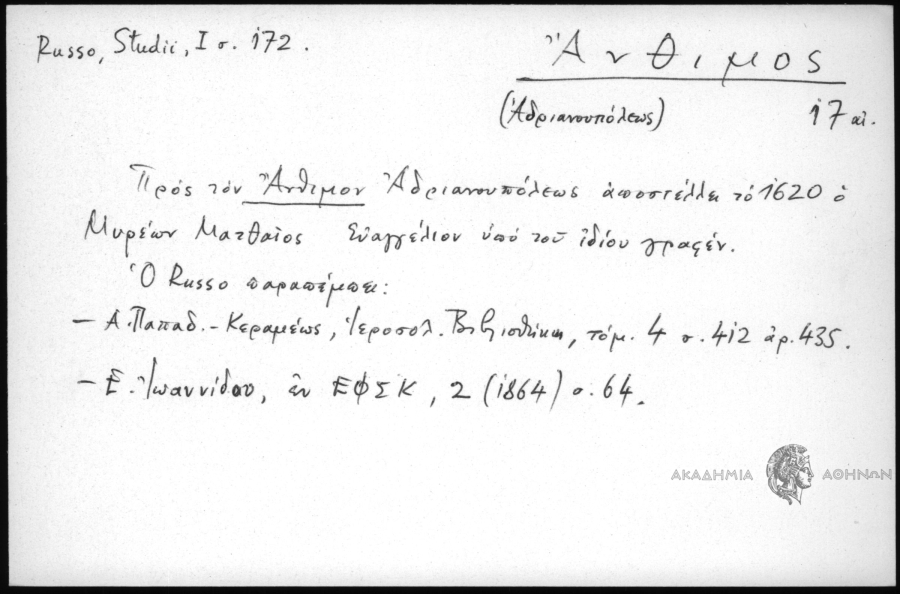 Russo, Studii, I σ. 172.
Ἄνθιμος
(Ἀδριανουπόλεως) 17 αἰ.
Πρὸς τὸν Ἄνθιμον Ἀδριανουπόλεως ἀποστέλλει τὸ 1620 ὁ
Μυρέων Ματθαῖος Εὐαγγέλιον ὑπὸ τοῦ ἰδίου γραφέν.
Ὁ Russo παραπέμπει:
– Α. Παπαδ.-Κεραμέως, Ἱεροσολ. Βιβλιοθήκη, τόμ. 4 σ. 412 ἀρ. 435.
– Ε. Ἰωαννίδου, ἐν ΕΦΣΚ, 2 (1864) σ. 64.
ΑΚΑΔΗΜΙΑ ΑΘΗΝΩΝ